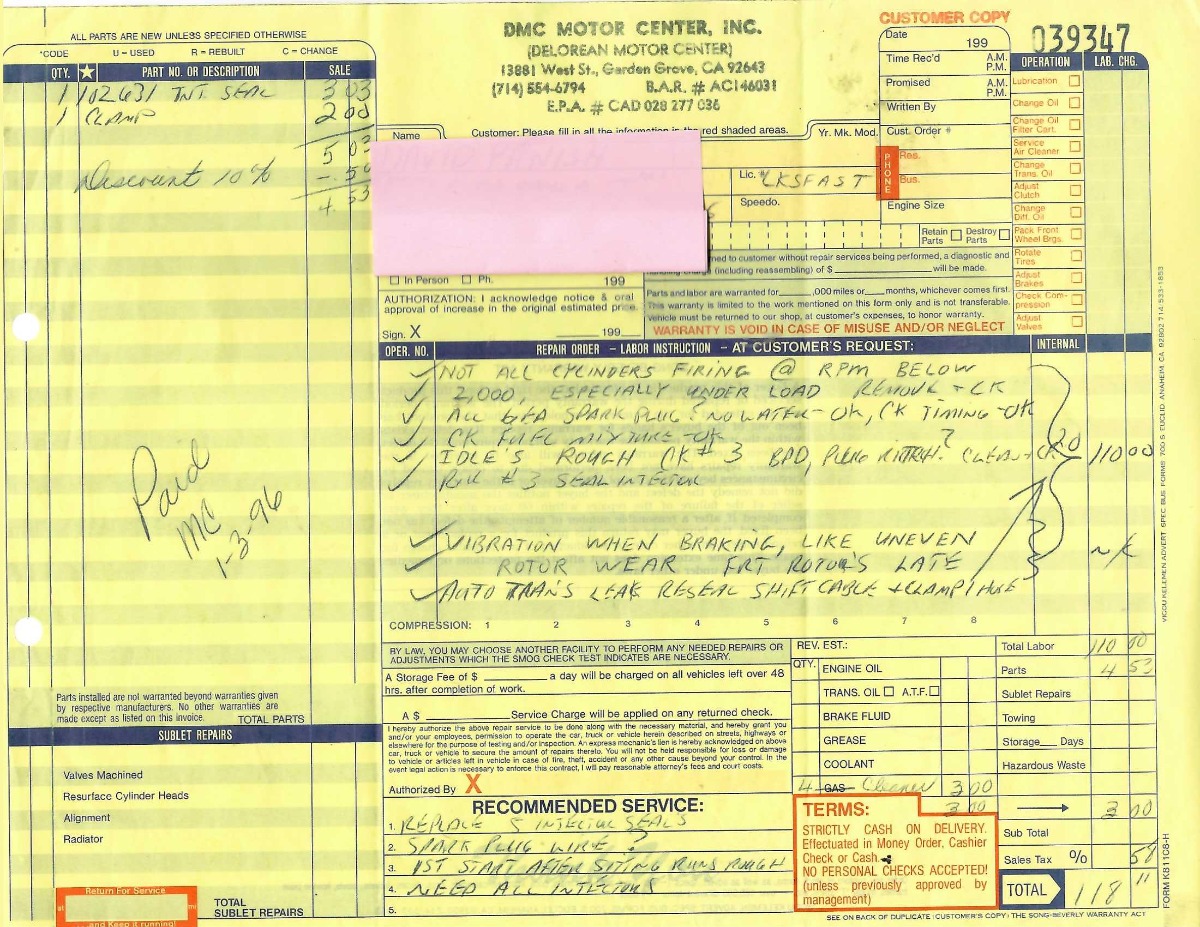 ALL PARTS ARE NEW UNLESS SPECIFIED OTHERWISE
*CODE U – USED R – REBUILT C – CHANGE
QTY. ★ PART NO. OR DESCRIPTION SALE
1 102631 INT. SEAL 3 03
1 CLAMP 2 00
5 03
Discount 10% -.50
4.53
Paid
MC
1-3-96
Parts installed are not warranted beyond warranties given
by respective manufacturers. No other warranties are
made except as listed on this invoice. TOTAL PARTS
SUBLET REPAIRS
Valves Machined
Resurface Cylinder Heads
Alignment
Radiator
Return For Service
at mi
and Keep it running!
TOTAL
SUBLET REPAIRS
DMC MOTOR CENTER, INC.
(DELOREAN MOTOR CENTER)
13881 West St., Garden Grove, CA 92643
(714) 554-6794 B.A.R. # AC146031
E.P.A. # CAD 028 277 036
CUSTOMER COPY
039347
Date 199
Time Rec'd A.M. P.M.
Promised A.M. P.M.
Written By
Customer: Please fill in all the information in the red shaded areas.
Name
Yr. Mk. Mod.
Cust. Order #
PHONE
Res.
Bus.
Lic. # LKSFAST
Speedo.
Engine Size
Retain Parts Destroy Parts
OPERATION LAB. CHG.
Lubrication
Change Oil
Change Oil Filter Cart.
Service Air Cleaner
Change Trans. Oil
Adjust Clutch
Change Diff. Oil
Pack Front Wheel Brgs.
Rotate Tires
Adjust Brakes
Check Compression
Adjust Valves
to customer without repair services being performed, a diagnostic and
(including reassembling) of $ will be made.
In Person Ph. 199
AUTHORIZATION: I acknowledge notice & oral
approval of increase in the original estimated price.
Sign. X 199
Parts and labor are warranted for ,000 miles or months, whichever comes first.
This warranty is limited to the work mentioned on this form only and is not transferable,
vehicle must be returned to our shop, at customer's expenses, to honor warranty.
WARRANTY IS VOID IN CASE OF MISUSE AND/OR NEGLECT
OPER. NO. REPAIR ORDER – LABOR INSTRUCTION – AT CUSTOMER'S REQUEST: INTERNAL
NOT ALL CYLINDERS FIRING @ RPM BELOW
2,000, ESPECIALLY UNDER LOAD REMOVE + CK
ALL SPARK PLUG ? NO WATER - OK, CK TIMING - OK
CK FUEL MIXTURE - OK
IDLE'S ROUGH CK # 3 BAD, PLUG ? CLEAN + CK 20 110 00
# 3 SEAL INJECTOR
VIBRATION WHEN BRAKING, LIKE UNEVEN
ROTOR WEAR FRT ROTOR'S LATE N/C
AUTO TRANS LEAK RESEAL SHIFT CABLE + CLAMP / HOSE
COMPRESSION: 1 2 3 4 5 6 7 8
BY LAW, YOU MAY CHOOSE ANOTHER FACILITY TO PERFORM ANY NEEDED REPAIRS OR
ADJUSTMENTS WHICH THE SMOG CHECK TEST INDICATES ARE NECESSARY.
A Storage Fee of $ a day will be charged on all vehicles left over 48
hrs. after completion of work.
A $ Service Charge will be applied on any returned check.
I hereby authorize the above repair service to be done along with the necessary material, and hereby grant you
and/or your employees, permission to operate the car, truck or vehicle herein described on streets, highways or
elsewhere for the purpose of testing and/or inspection. An express mechanic's lien is hereby acknowledged on above
car, truck or vehicle to secure the amount of repairs thereto. You will not be held responsible for loss or damage
to vehicle or articles left in vehicle in case of fire, theft, accident or any other cause beyond your control. In the
event legal action is necessary to enforce this contract, I will pay reasonable attorney's fees and court costs.
Authorized By X
RECOMMENDED SERVICE:
1. REPLACE 5 INJECTOR SEALS
2. SPARK PLUG WIRE ?
3. 1ST START AFTER SITING RUNS ROUGH
4. NEED ALL INJECTORS
5.
REV. EST.:
QTY. ENGINE OIL
TRANS. OIL A.T.F.
BRAKE FLUID
GREASE
COOLANT
4 GAS Cleaner 3.00
3 00
TERMS:
STRICTLY CASH ON DELIVERY.
Effectuated in Money Order, Cashier
Check or Cash.
NO PERSONAL CHECKS ACCEPTED!
(unless previously approved by
management)
Total Labor 110 00
Parts 4 53
Sublet Repairs
Towing
Storage Days
Hazardous Waste
3 00
Sub Total
Sales Tax % 58
TOTAL 118 11
SEE ON BACK OF DUPLICATE (CUSTOMER'S COPY) THE SONG-BEVERLY WARRANTY ACT
VICOU KELEMEN ADVERT. SPEC. BUS. FORMS 700 S. EUCLID, ANAHEIM, CA. 92802 714 533-1853
FORM K811C8-H